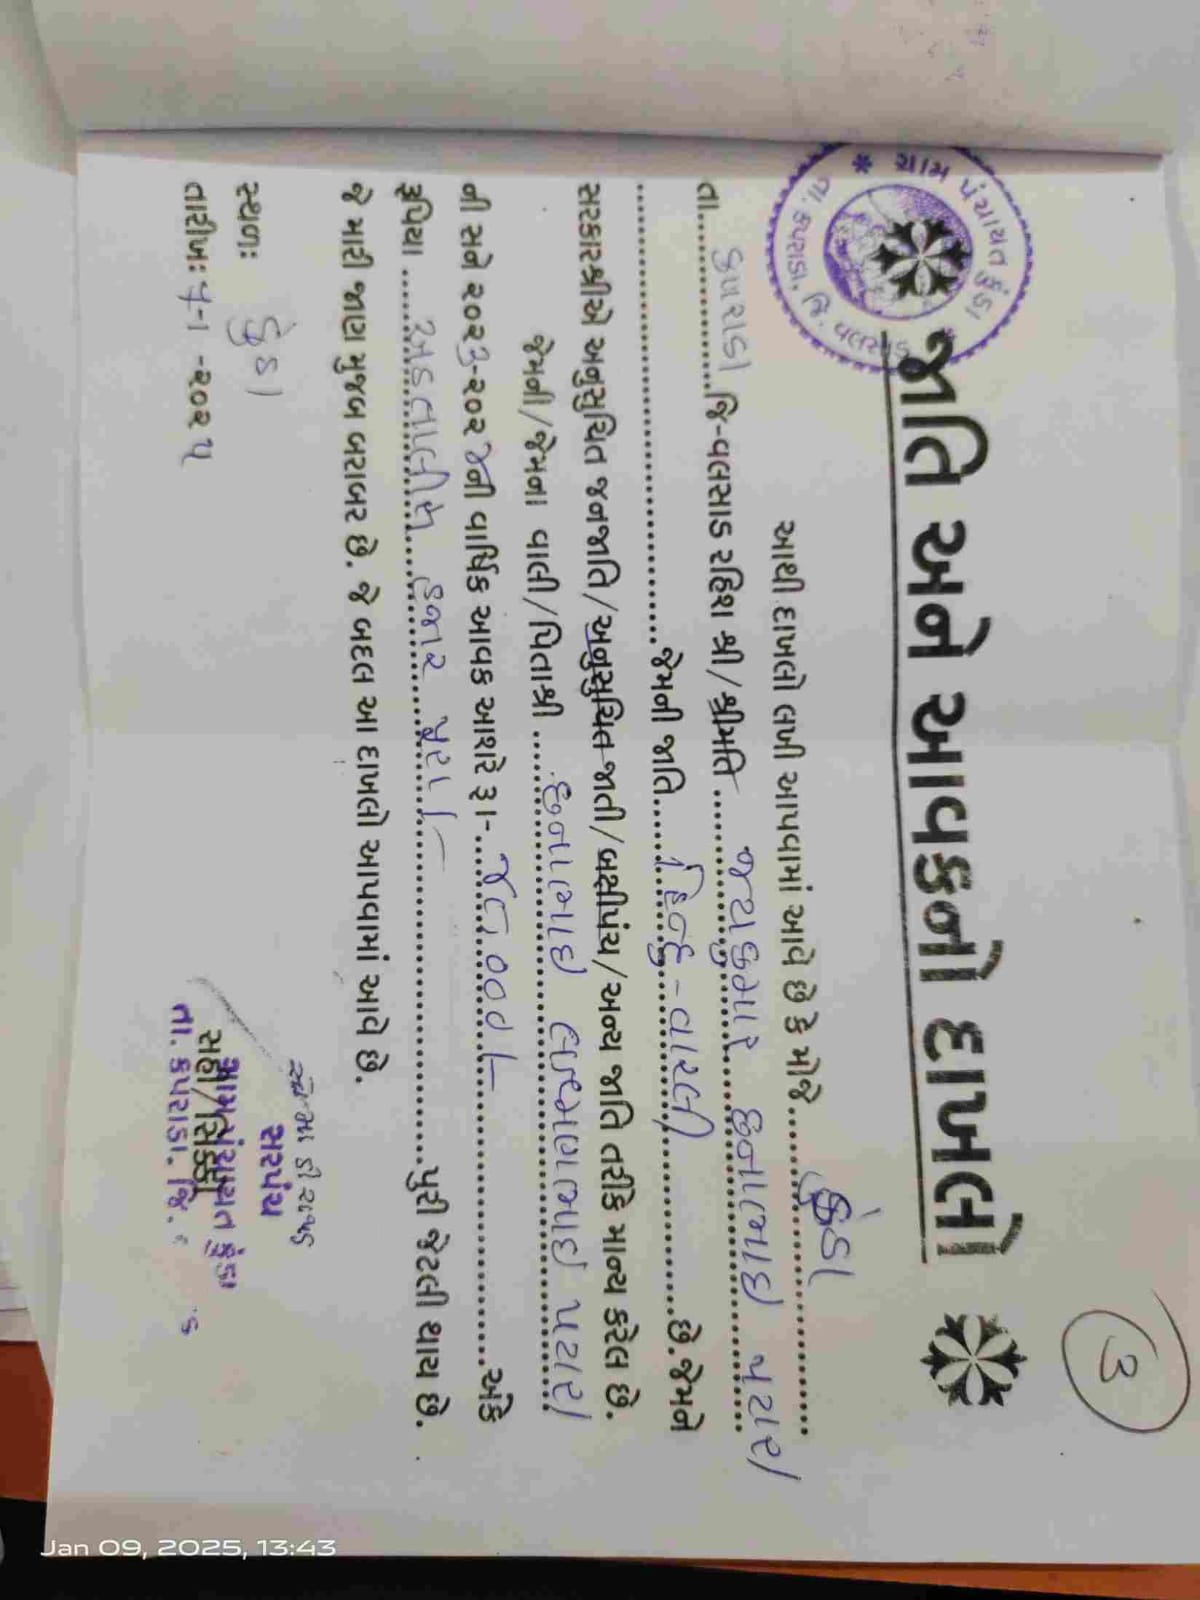 ૩
જાતિ અને આવકનો દાખલો
ગ્રામ પંચાયત કુંડા
તા. કપરાડા, જી. વલસાડ
આથી દાખલો લખી આપવામાં આવે છે કે મોજે.......... કુંડા
તા.......... કપરાડા ..........જિ-વલસાડ રહિશ શ્રી/શ્રીમતિ .......... જયકુમાર .......... પટારા
..........જેમની જાતિ.......... હિન્દુ - વારલી ..........છે.જેમને
સરકારશ્રીએ અનુસુચિત જનજાતિ/અનુસુચિત જાતી/બક્ષીપંચ/અન્ય જાતિ તરીકે માન્ય કરેલ છે.
જેમની/જેમના વાલી/પિતાશ્રી .......... લક્ષ્મણભાઇ પટારા
ની સને ૨૦૨૩-૨૦૨૪ની વાર્ષિક આવક આશરે રૂા-.......... ..........અંકે
રૂપિયા .......... અડતાલીસ હજાર પુરા ..........પુરી જેટલી થાય છે.
જે મારી જાણ મુજબ બરાબર છે. જે બદલ આ દાખલો આપવામાં આવે છે.
સ્થળઃ કુંડા
તારીખઃ ૧-૨૦૨૫
સરપંચ
ગ્રામ પંચાયત કુંડા
સહી/સિક્કો
તા. કપરાડા. જિ.
Jan 09, 2025, 13:43